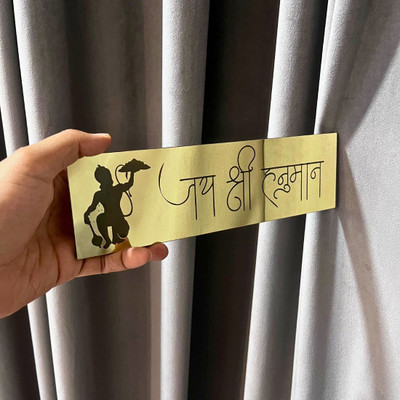 जय श्री हनुमान